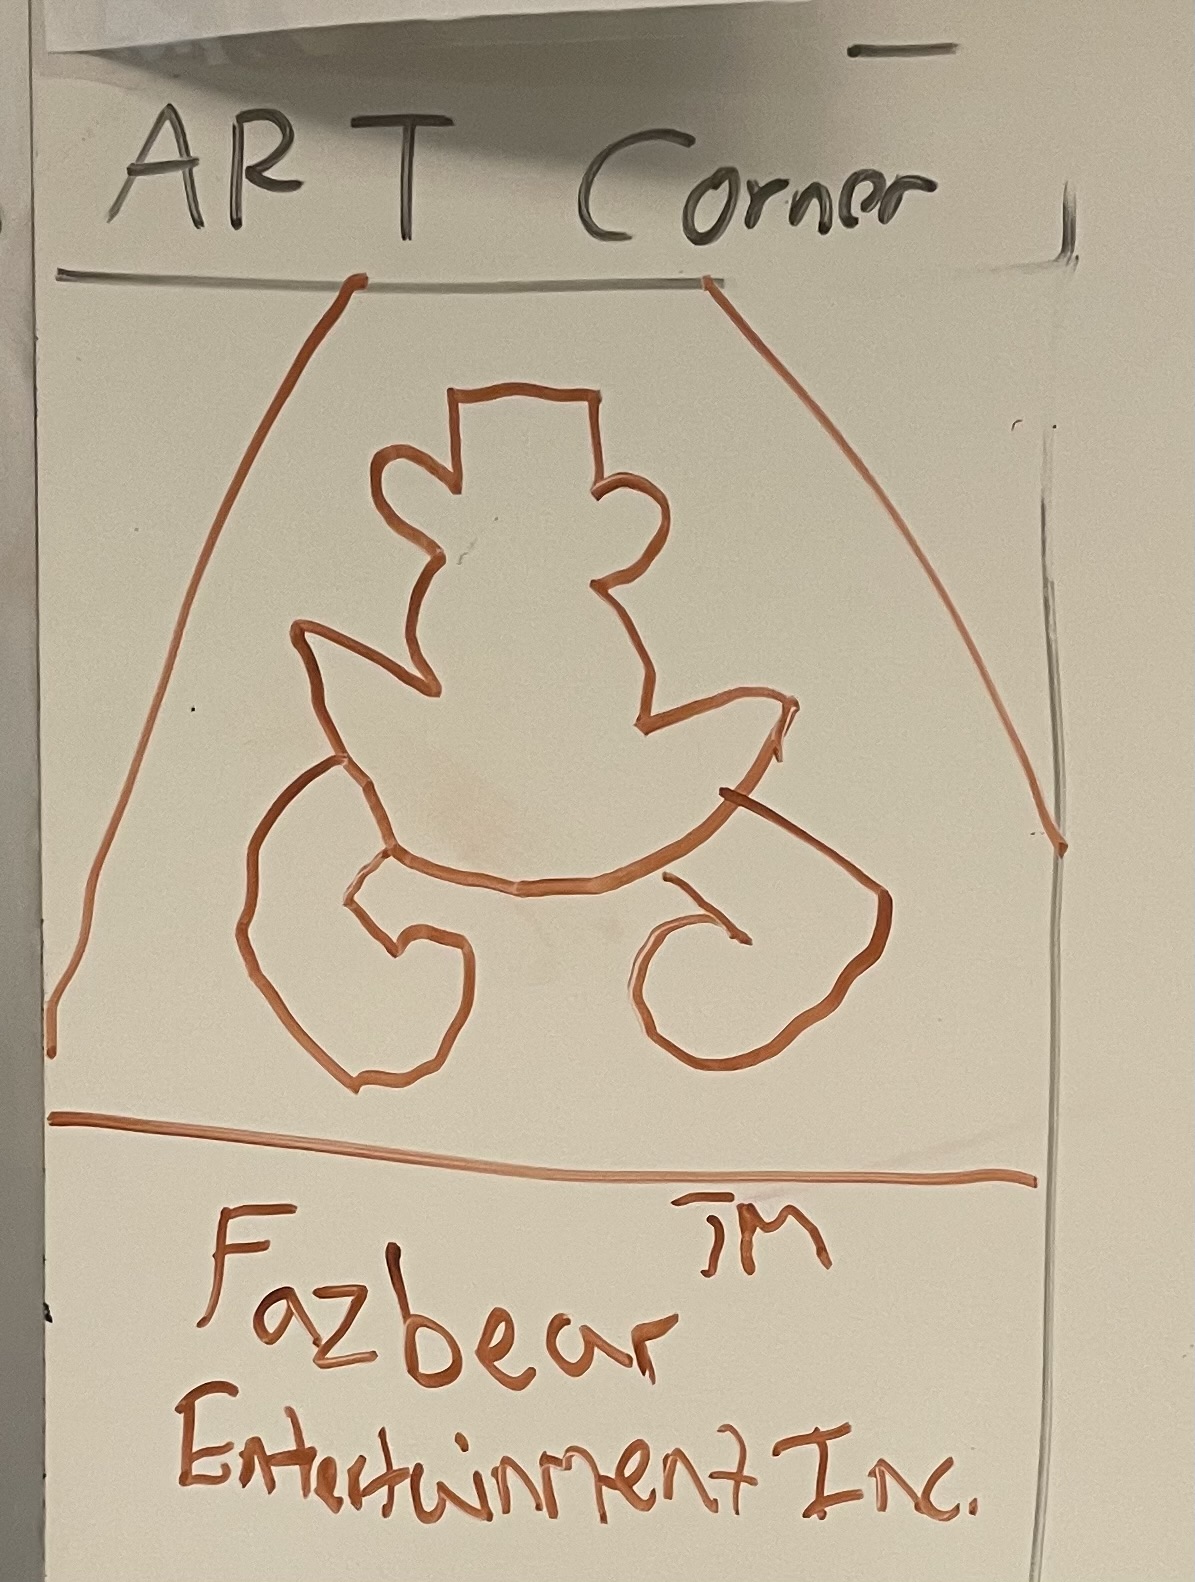 ART Corner
Fazbear™
Entertainment Inc.